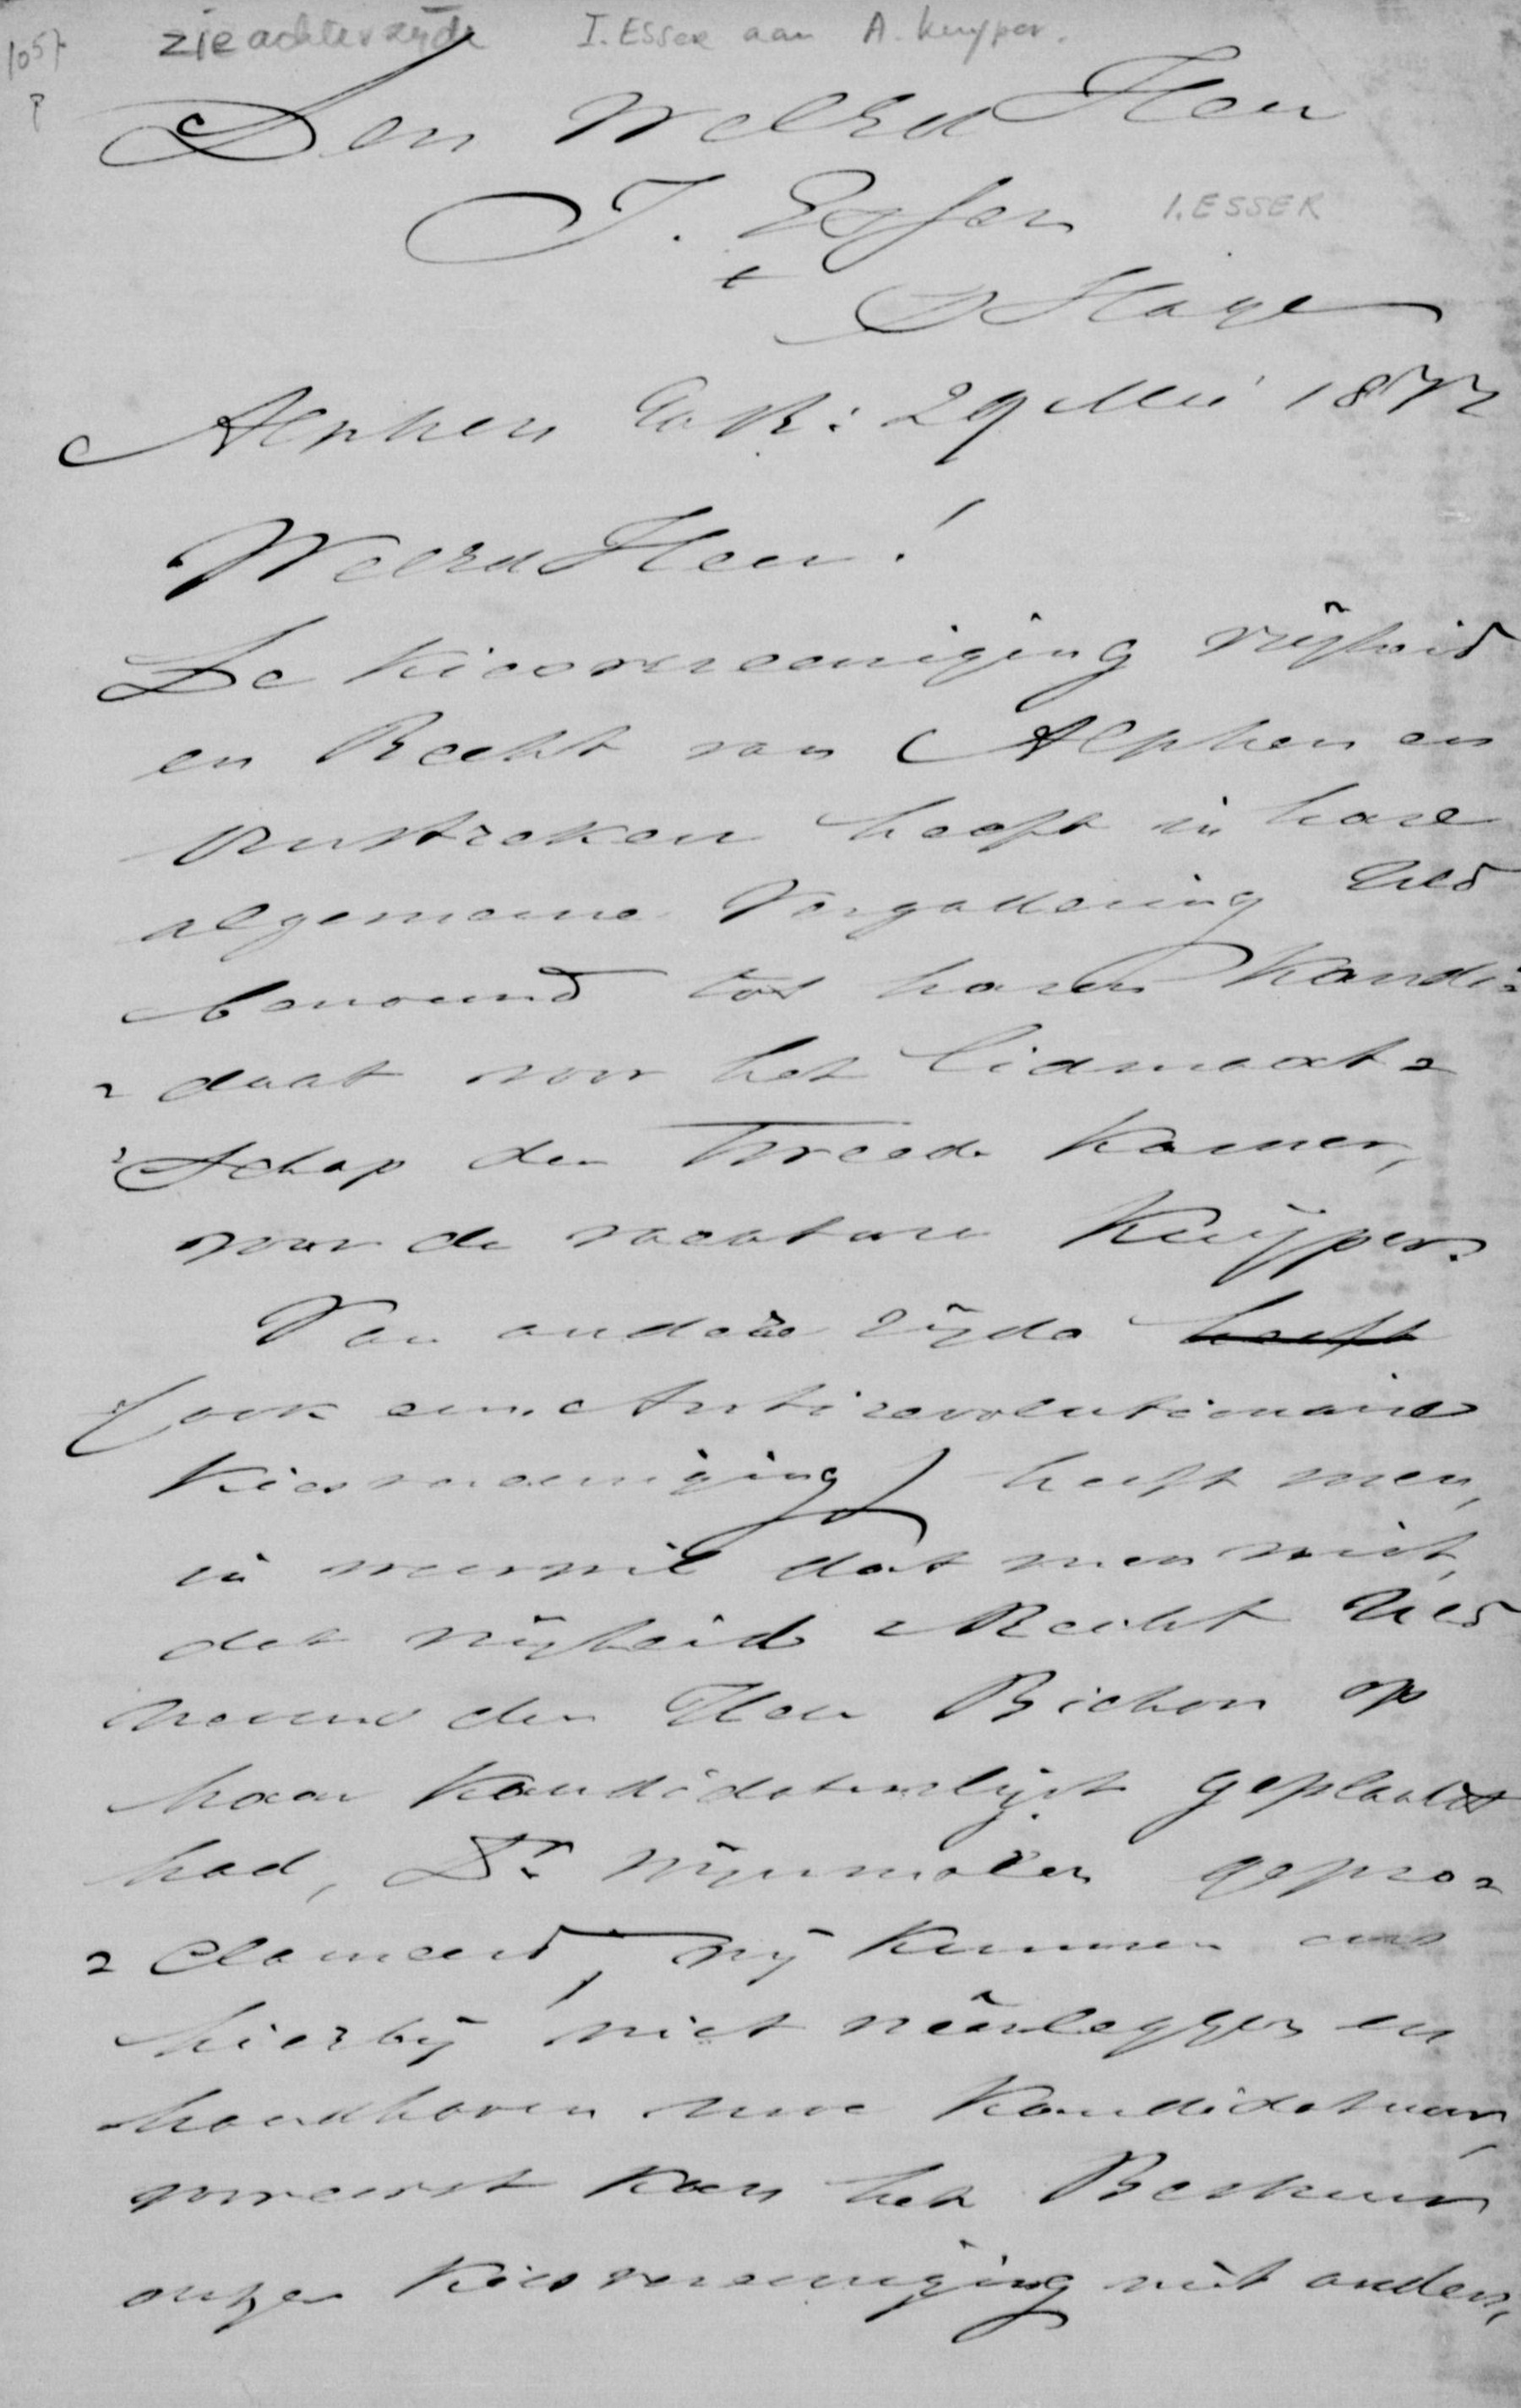 1057
zie achterzijde I. Esser aan A. Kuyper.
Den WelEd Heer
I. Esser
I. ESSER
's Hage
Alphen a/d R: 29 Mei 1877
WelEd Heer!
De Kiesvereeniging vrijheid
en Recht van Alphen en
omstreken heeft in hare
algemeene Vergadering UEd
benoemd tot haren Kandi=
=daat voor het lidmaat=
=schap der Tweede Kamer,
voor de vacature Kuijper.
Van andere zijde heeft
(ook eene Antirevolutionaire
Kiesvereeniging) heeft men,
in weerwil dat men niet,
dat vrijheid & Recht UEd
nevens den Heer Bichon op
haar Kandidatenlijst geplaatst
had, Dr gepro=
=clameerd, wij kunnen ons
hierbij niet neerleggen en
handhaven uwe Kandidatuur,
vooreerst kan het Bestuur
onzer Kiesvereeniging niet anders,